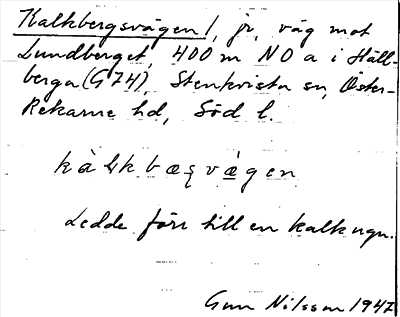 Kalkbergsvägen /, jr, väg mot
Lundberget, 400 m NO a i Häll-
berga (G74), Stenkvista sn, Öster-
Rekarne hd, Söd l.
kàlkbæʂvæ̀gen
Ledde förr till en kalkugn.
Gun Nilsson 1947